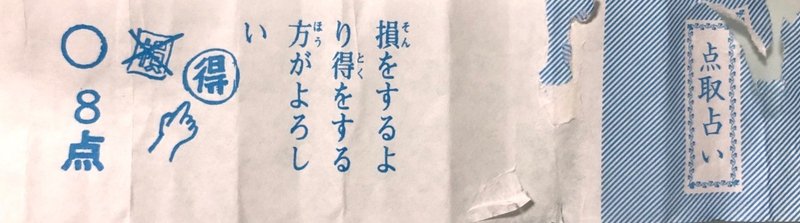 点取占い
損をするよ
り得をする
方がよろし
い
得
損
○
8点